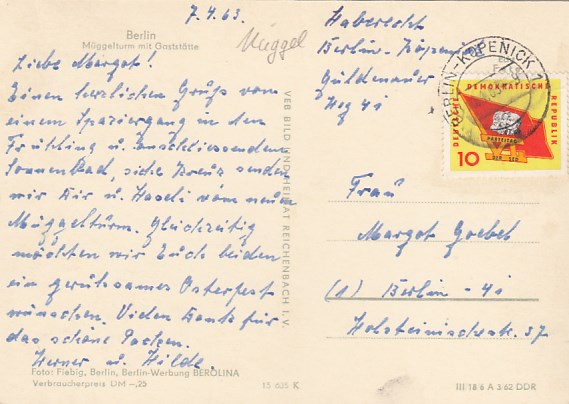 7.4.63.
Berlin
Müggelturm mit Gaststätte
Müggel
Liebe Margot!
Einen herzlichen Gruß vom
einem Spaziergang in den
Frühling u. anschliessenden
Sonnenbad, siehe Kreuz senden
wir Dir u. vom neuen
Müggelturm. Gleichzeitig
möchten wir Euch beiden
ein geruhsames Osterfest
wünschen. Vielen Dank für
das schöne
Werner u. Hilde.
Foto: Fiebig, Berlin, Berlin-Werbung BEROLINA
Verbraucherpreis DM -,25
15 635 K
VEB BILD UND HEIMAT REICHENBACH I. V.
Haberecht
Berlin-Köpenick
Güldenauer
Weg 41
BERLIN-KÖPENICK 1
DEUTSCHE DEMOKRATISCHE REPUBLIK
PARTEITAG
DER SED
10
Frau
Margot Goebel
(1) Berlin-41
Holsteinischestr. 37
III 18 6 A 3 62 DDR